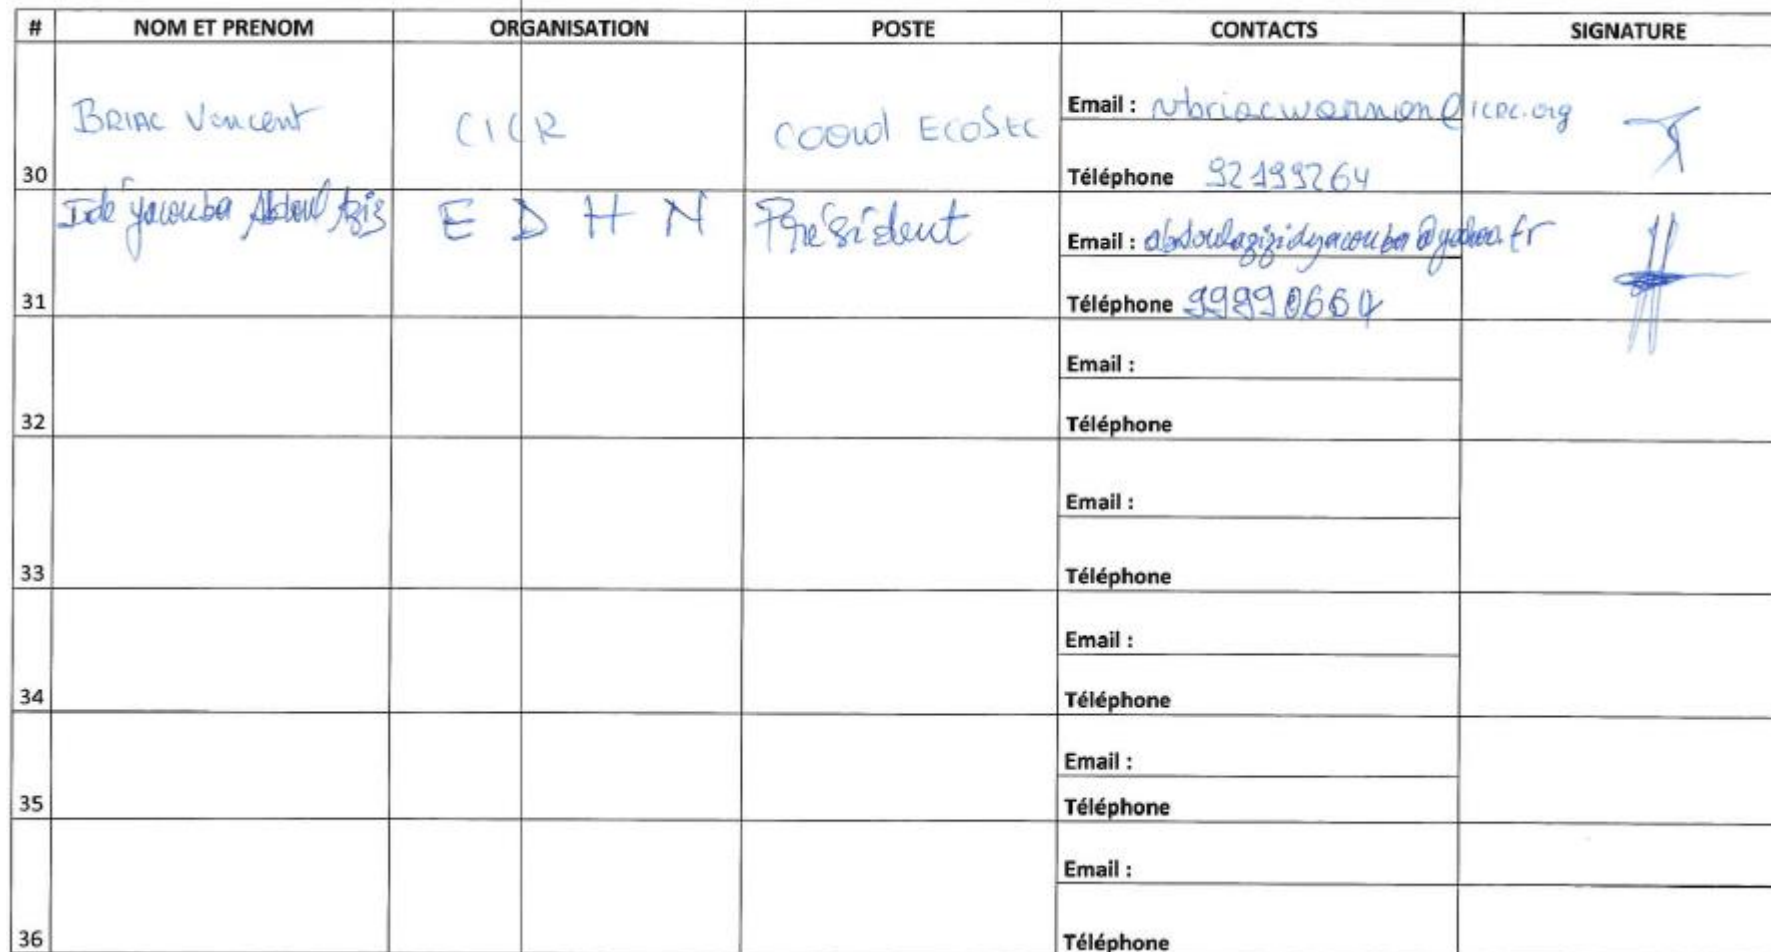 # NOM ET PRENOM ORGANISATION POSTE CONTACTS SIGNATURE
30 BRIAC Vincent CICR COORD ECOSEC Email : vbriacwarnon@icrc.org
Téléphone 92199264
31 Idé yacouba Abdoul Aziz E D H N Président Email : abdoulazizidyacouba@yahoo.fr
Téléphone 99990660
32 Email :
Téléphone
33 Email :
Téléphone
34 Email :
Téléphone
35 Email :
Téléphone
36 Email :
Téléphone